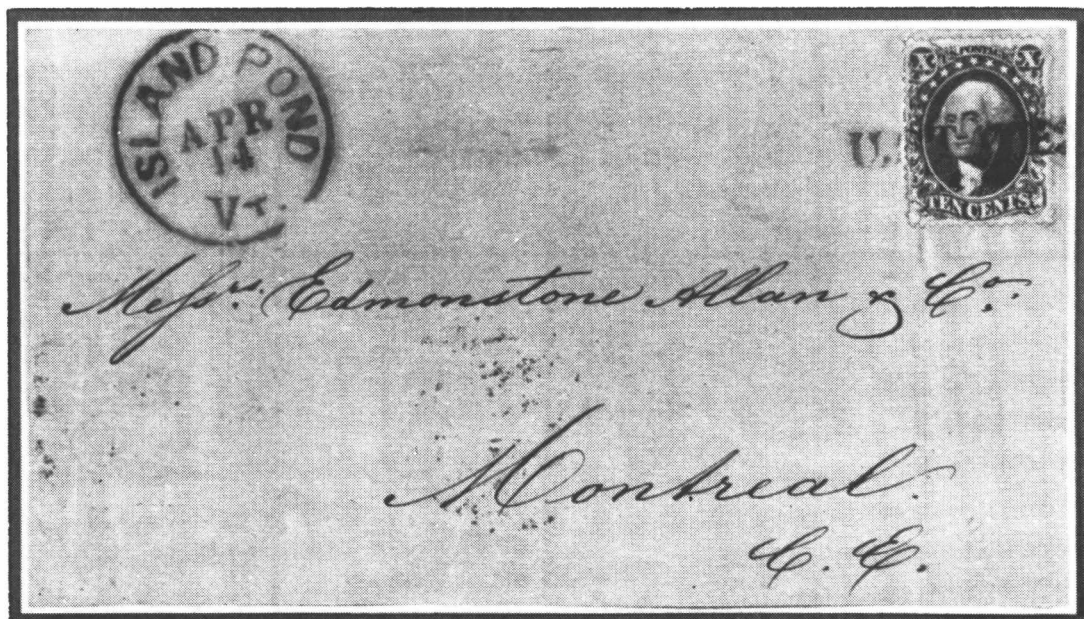 ISLAND POND
APR
14
Vt.
U.
X POSTAGE X
TEN CENTS
Messrs. Edmonstone Allan & Co.
Montreal.
C. E.